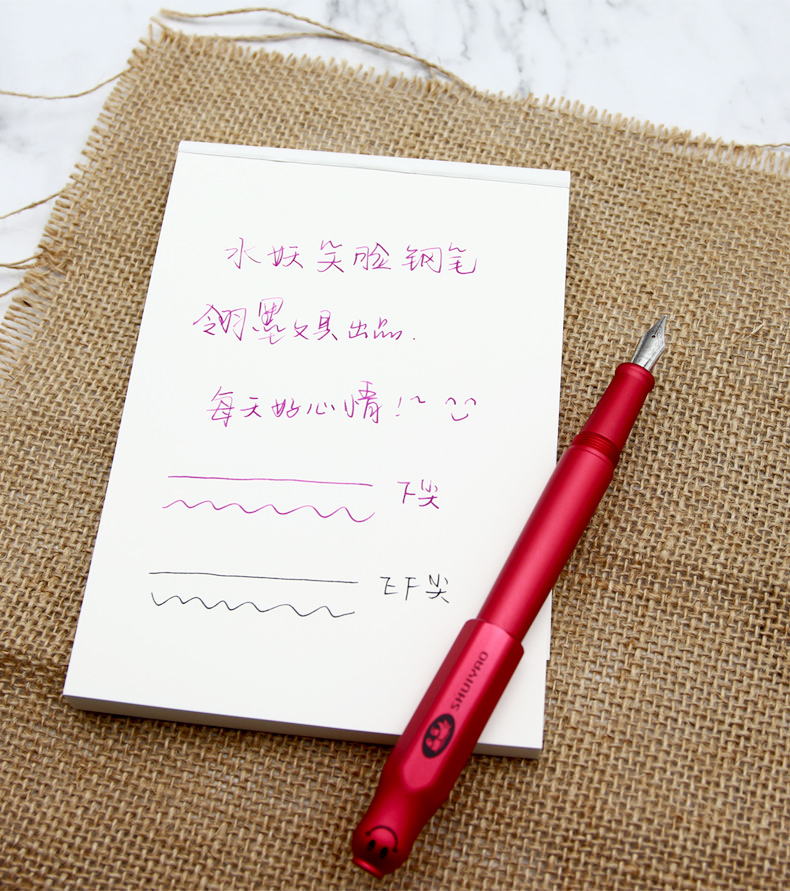 水妖笑脸钢笔
翎墨文具出品.
每天好心情!~
F尖
EF尖
SHUIYAO